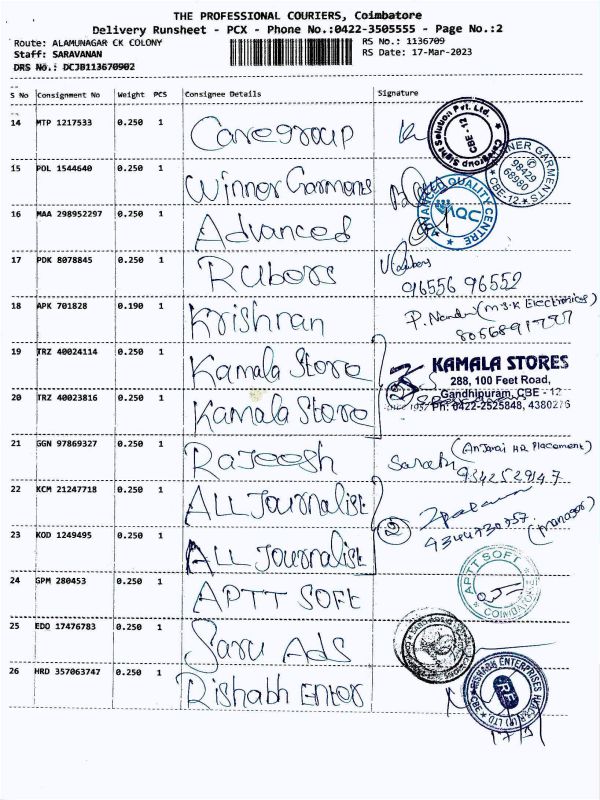 THE PROFESSIONAL COURIERS, Coimbatore
Delivery Runsheet - PCX - Phone No.:0422-3505555 - Page No.:2
Route: ALAMUNAGAR CK COLONY RS No.: 1136709
Staff: SARAVANAN RS Date: 17-Mar-2023
DRS No.: DCJB113670902
S No Consignment No Weight PCS Consignee Details Signature
14 MTP 1217533 0.250 1 Caregroup
Caregroup Sight Solution Pvt. Ltd. CBE - 12
15 POL 1544640 0.250 1 Winner Garments
WINNER GARMENTS 98429 68980 CBE-12
16 MAA 298952297 0.250 1 Advanced
ADVANCED QUALITY CENTRE AQC
17 PDK 8078845 0.250 1 Rubers
96556 96552
18 APK 701828 0.190 1 Krishnan
(M.S.K Electronics)
19 TRZ 40024114 0.250 1 Kamala Store
KAMALA STORES
288, 100 Feet Road,
20 TRZ 40023816 0.250 1 Kamala Store
Gandhipuram, CBE - 12
Ph: 0422-2525848, 4380276
21 GGN 97869327 0.250 1 Rajeesh
(Anjarai HR Placement)
9342529147
22 KCM 21247718 0.250 1 ALL Journalist
2
(manager)
23 KOD 1249495 0.250 1 ALL Journalist
24 GPM 280453 0.250 1 APTT SOFT
APTT SOFT COIMBATORE
25 EDO 17476783 0.250 1 Saru Ads
26 HRD 357063747 0.250 1 Rishabh Enter
RISHABH ENTERPRISES RE